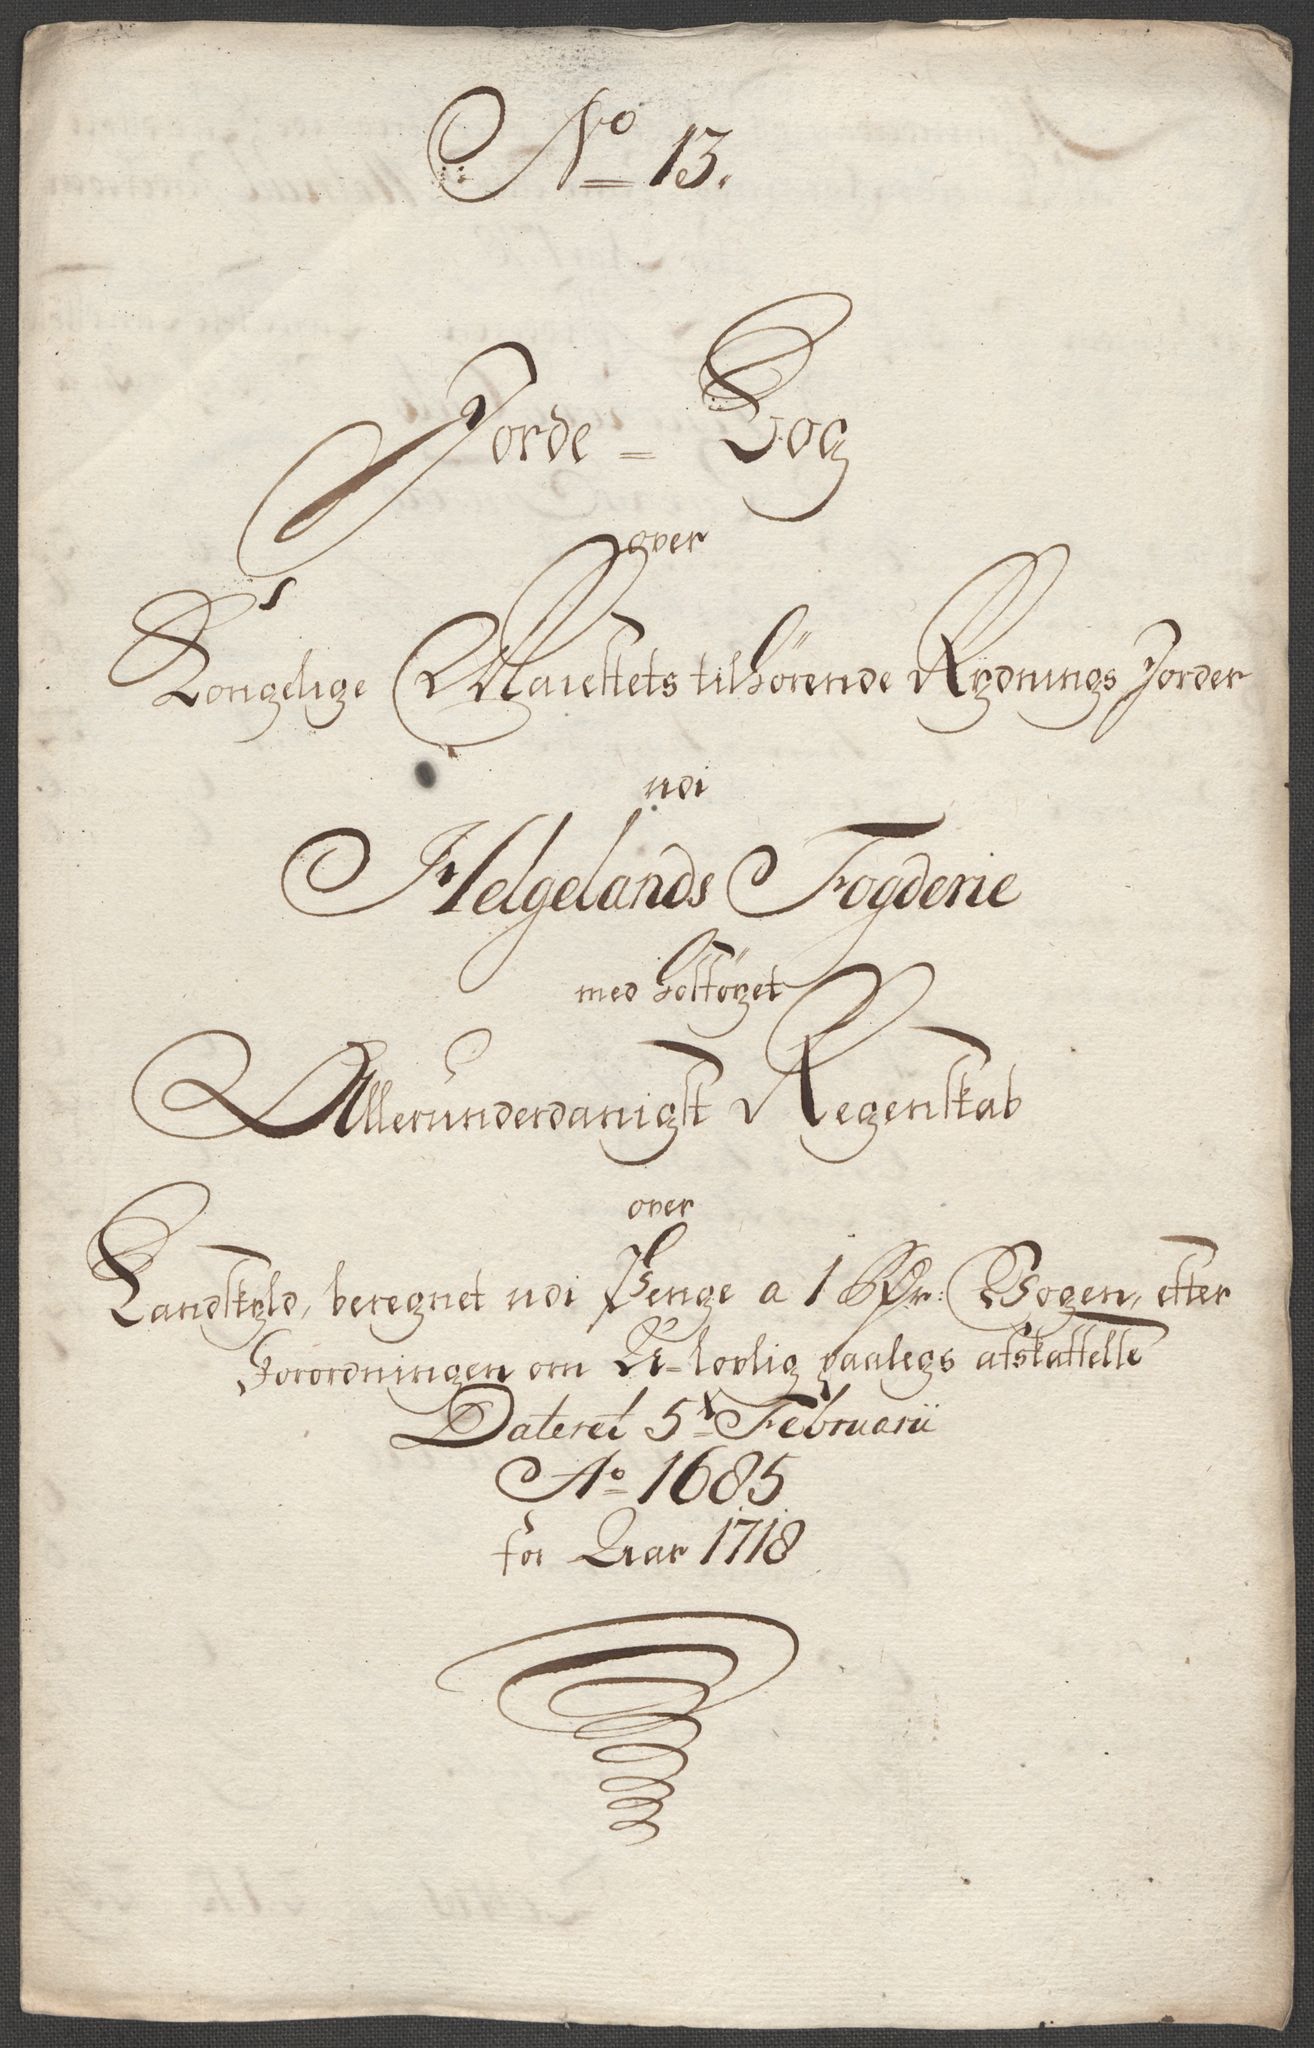 No 13.
Jorde = Bog
over
Kongelige Maiestets tilhörende Rydnings Jorder
udi
Helgelands Fogderie
med hosföyet
Allerunderdanigst Regenskab
over
Landskyld, beregnet udi Penge a 1 Rdr: Wogen, efter
Forordningen om U-lovlig paalegs afskaffelse
Dateret 5t Februarii
Ao 1685
for Aar 1718